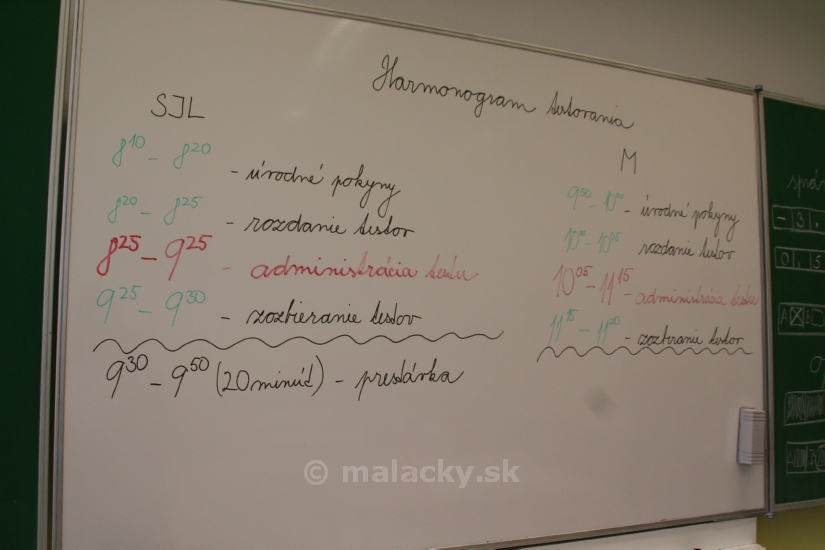 Harmonogram testovania
SJL
8¹⁰ - 8²⁰ - úvodné pokyny
8²⁰ - 8²⁵ - rozdanie testov
8²⁵ - 9²⁵ - administrácia testu
9²⁵ - 9³⁰ - zozbieranie testov
9³⁰ - 9⁵⁰ (20 minút) - prestávka
M
9⁵⁰ - 10⁰⁰ - úvodné pokyny
10⁰⁰ - 10⁰⁵ rozdanie testov
10⁰⁵ - 11¹⁵ - administrácia testu
11¹⁵ - 11²⁰ - zozbieranie testov
- 3 ,
0 , 5
A
© malacky.sk